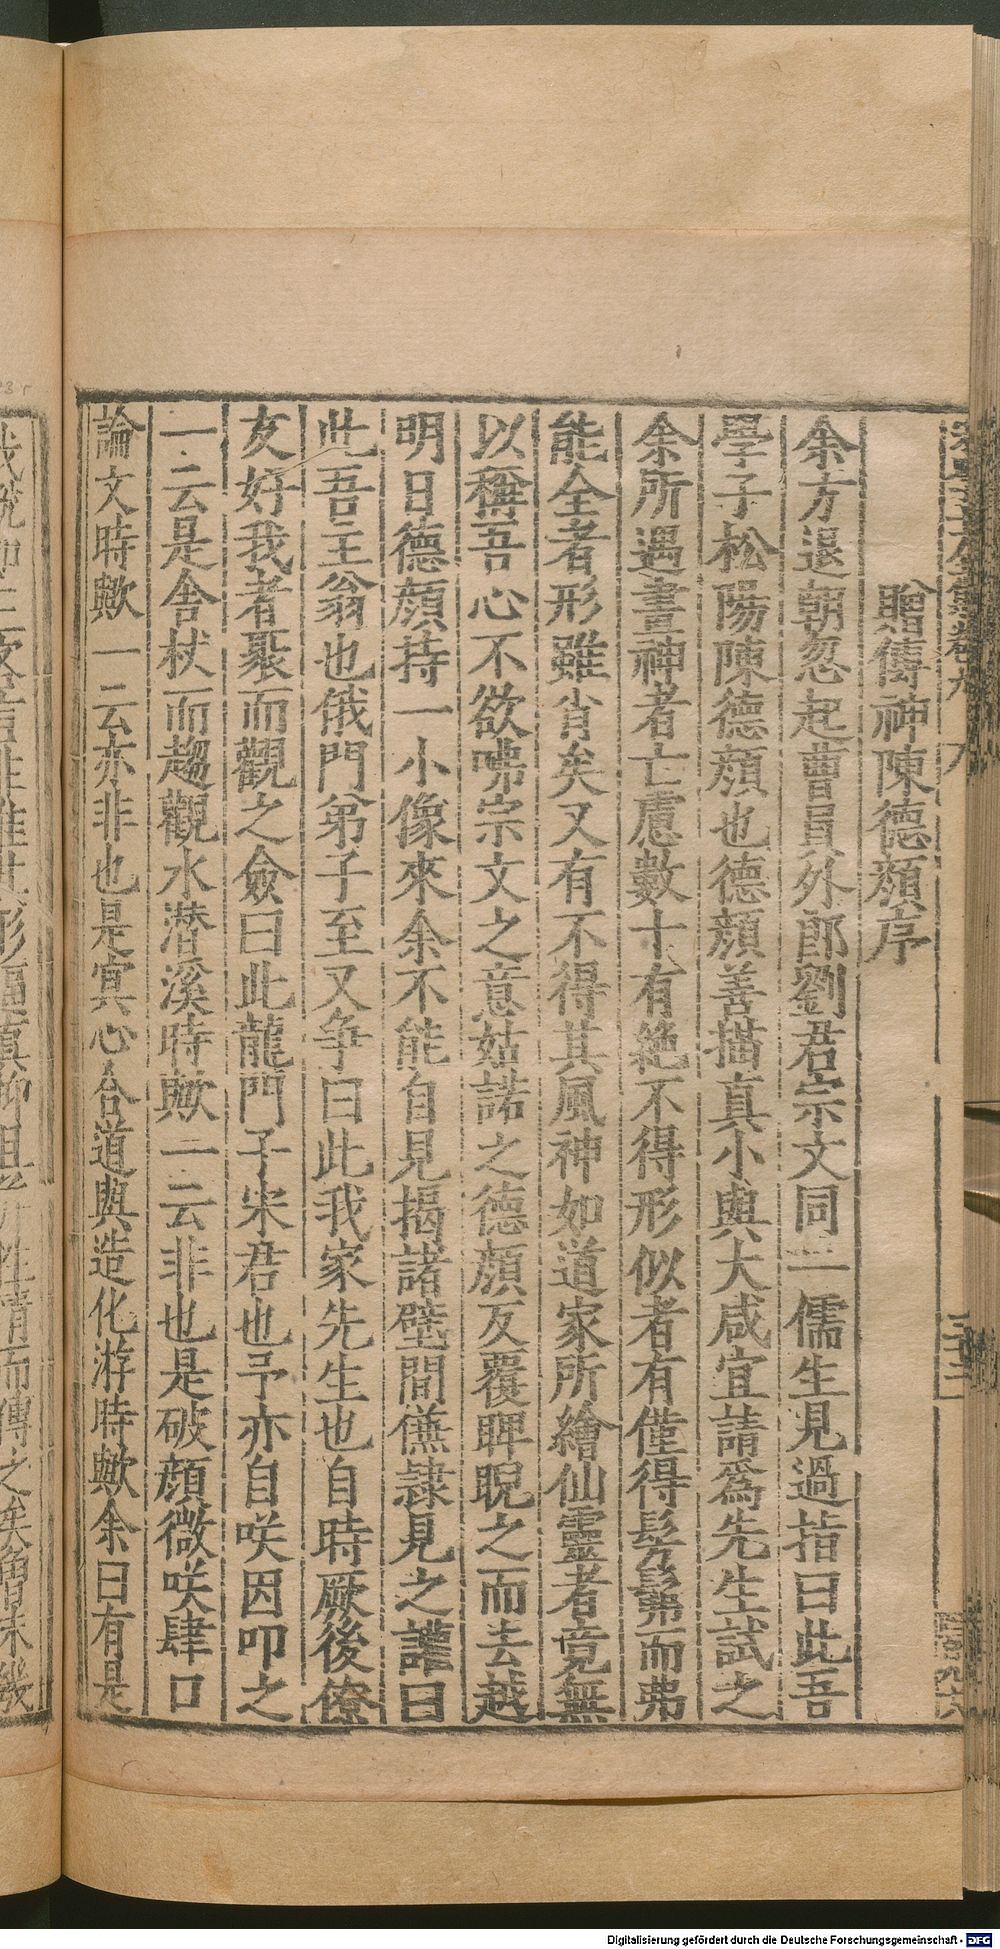 贈傳神陳德顏序
余方退朝忽起曹員外郎劉君宗文同一儒生見過指曰此吾
學子松陽陳德顏也德顏善描真小與大咸宜請爲先生試之
余所遇畫神者亡慮數十有絶不得形似者有僅得髣髴而弗
能全者形雖肖矣又有不得其風神如道家所繪仙靈者竟無
以稱吾心不欲咈宗文之意姑諾之德顏反覆睥睨之而去越
明日德顏持一小像來余不能自見揭諸壁間僕隷見之讙曰
此吾主翁也俄門弟子至又爭曰此我家先生也自時厥後僚
友好我者聚而觀之僉曰此龍門子宋君也予亦自咲因叩之
一云是舍杖而趨觀水潛溪時歟一云非也是破顏微咲肆口
論文時歟一云亦非也是冥心合道與造化游時歟余曰有是
Digitalisierung gefördert durch die Deutsche Forschungsgemeinschaft - DFG